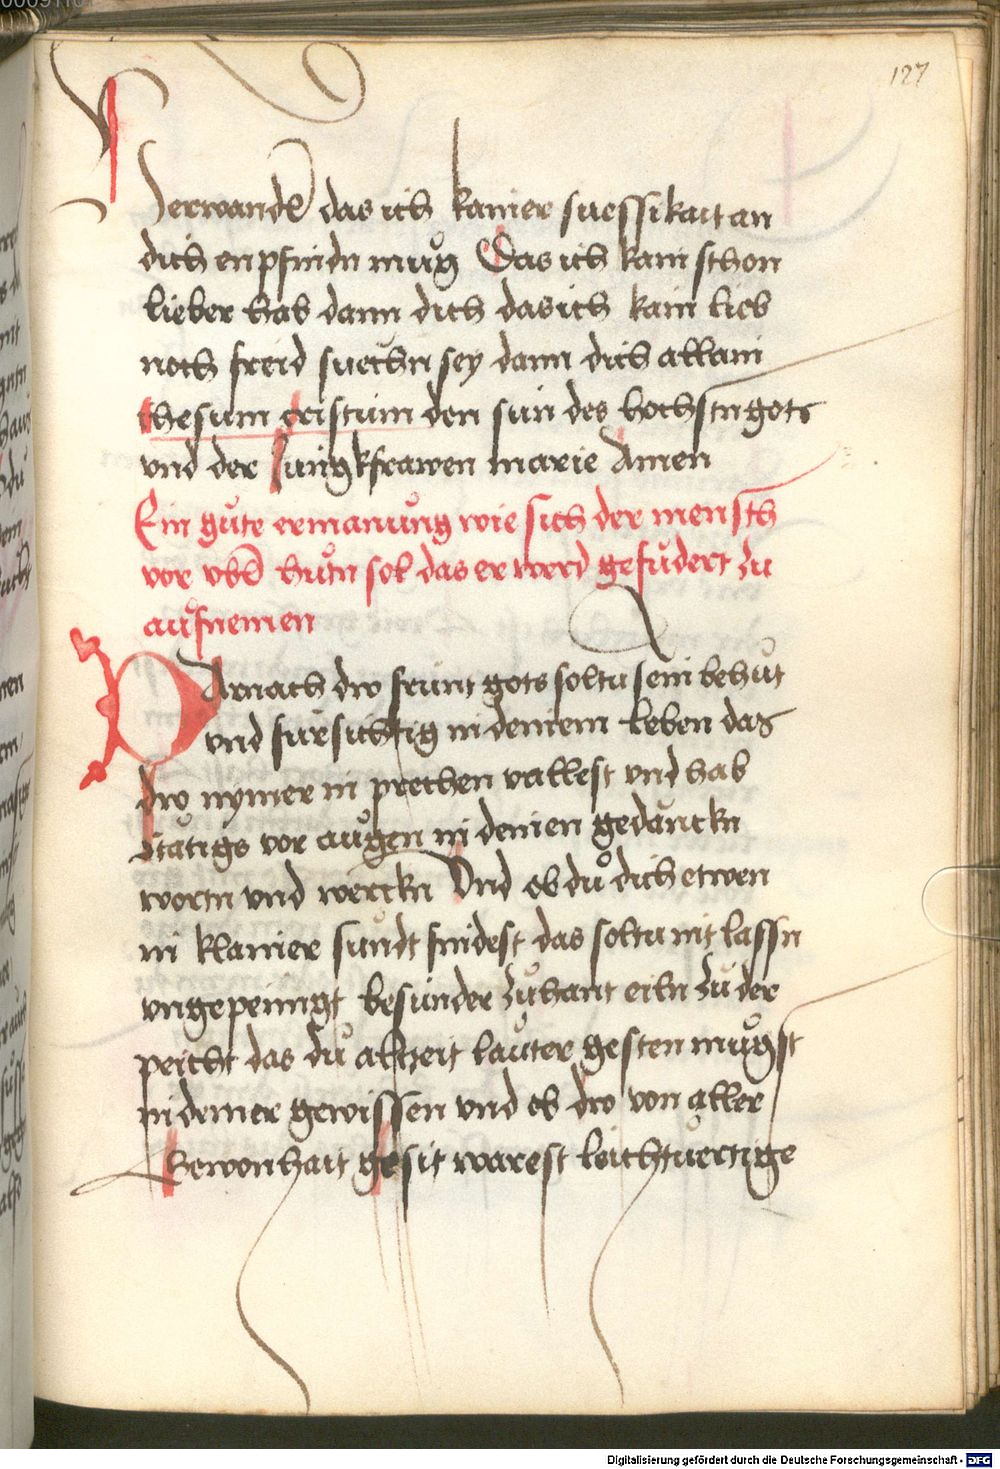 127
verwandl das ich kainer suessikait an
dich enpfindn mug Das ich kain schon
lieber hab dann dich das ich kain lieb
noch freid suechn sey dann dich allain
ihesum cristum den sun des hochstn gots
vnd der Jungkfrawen marie Amen
Ein gute ermanung wie sich der mensch
vor vbel hutn sol das er werd gefudert zu
aufnemen
Darnach dw frunt gots soltu sein behut
vnd fursichtig in deinem leben das
dw nymer in prechen vallest vnd hab
statigs vor augen in deinen gedanckn
wortn vnd werckn Vnd ob du dich etwen
in klainer sundt findest das soltu nit lassn
vngepeinigt besunder zuhant eiln zu der
peicht das du altzeit lauter gesten mugst
in deiner gewissen vnd ob dw von aller
gewonhait gesit warest leichtuertige
Digitalisierung gefördert durch die Deutsche Forschungsgemeinschaft - DFG